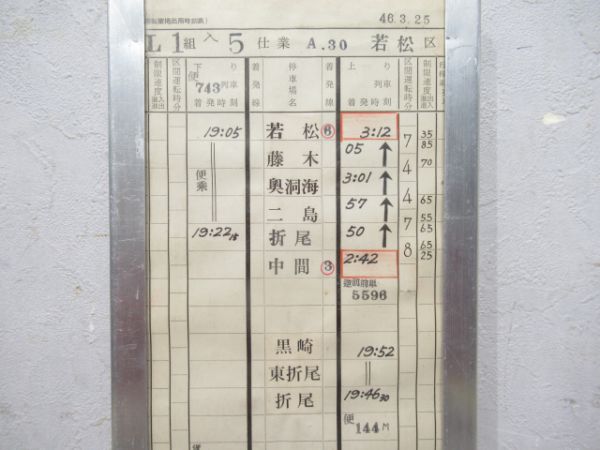 46.3.25
L 1組入5仕業 A.30 若松区
制限速度 区間運転時分 下り 便 743 列車 着発時刻 着発線 停車場名 着発線 上り 列車 着発時刻 区間運転時分 制限速度
19:05 若松 ⑥ 3:12
7 35 85
藤木 05
4 70
便乗 奥洞海 3:01
4
二島 57 65
7 55 65
19:22 15 折尾 50
8 65 25
中間 ③ 2:42
5596
黒崎 19:52
東折尾
折尾 19:46 30
便 144M